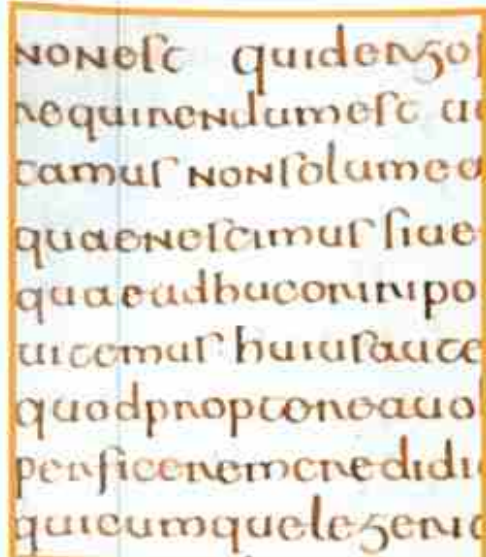 NONest quidergos
requirendumest ut
tamus NONsolumea
quaeNescimus siue
quaeadhuc
uitemus huiusaute
quodproptereauol
perficeremcredidi
quicumquelegerit